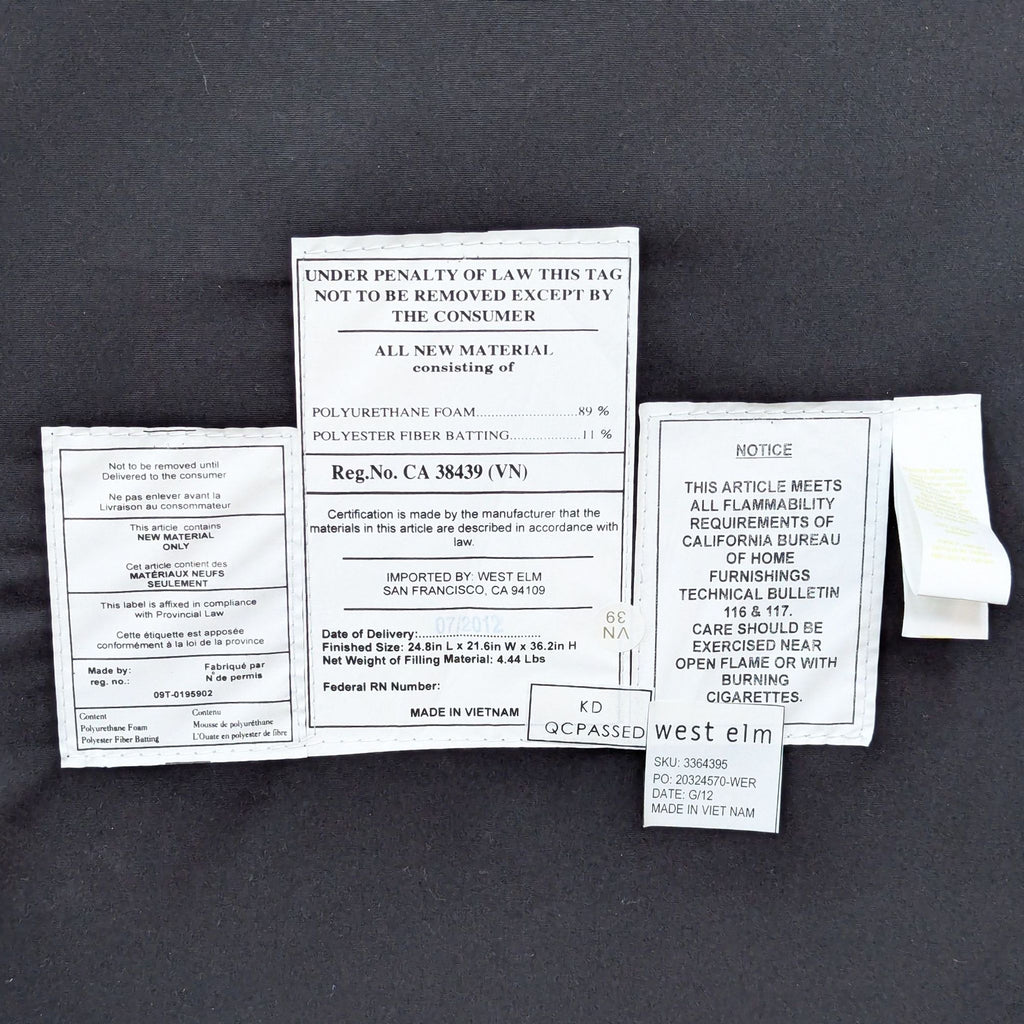 Not to be removed until
Delivered to the consumer
Ne pas enlever avant la
Livraison au consommateur
This article contains
NEW MATERIAL
ONLY
Cet article contient des
MATÉRIAUX NEUFS
SEULEMENT
This label is affixed in compliance
with Provincial Law
Cette étiquette est apposée
conformément à la loi de la province
Made by: Fabriqué par
reg. no.: N° de permis
09T-0195902
Content Contenu
Polyurethane Foam Mousse de polyuréthane
Polyester Fiber Batting L'Ouate en polyester de fibre
UNDER PENALTY OF LAW THIS TAG
NOT TO BE REMOVED EXCEPT BY
THE CONSUMER
ALL NEW MATERIAL
consisting of
POLYURETHANE FOAM........................89 %
POLYESTER FIBER BATTING.................11 %
Reg.No. CA 38439 (VN)
Certification is made by the manufacturer that the
materials in this article are described in accordance with
law.
IMPORTED BY: WEST ELM
SAN FRANCISCO, CA 94109
07/2012
Date of Delivery:..............................
Finished Size: 24.8in L x 21.6in W x 36.2in H
Net Weight of Filling Material: 4.44 Lbs
Federal RN Number:
MADE IN VIETNAM
VN
39
KD
QCPASSED
NOTICE
THIS ARTICLE MEETS
ALL FLAMMABILITY
REQUIREMENTS OF
CALIFORNIA BUREAU
OF HOME
FURNISHINGS
TECHNICAL BULLETIN
116 & 117.
CARE SHOULD BE
EXERCISED NEAR
OPEN FLAME OR WITH
BURNING
CIGARETTES.
west elm
SKU: 3364395
PO: 20324570-WER
DATE: G/12
MADE IN VIET NAM